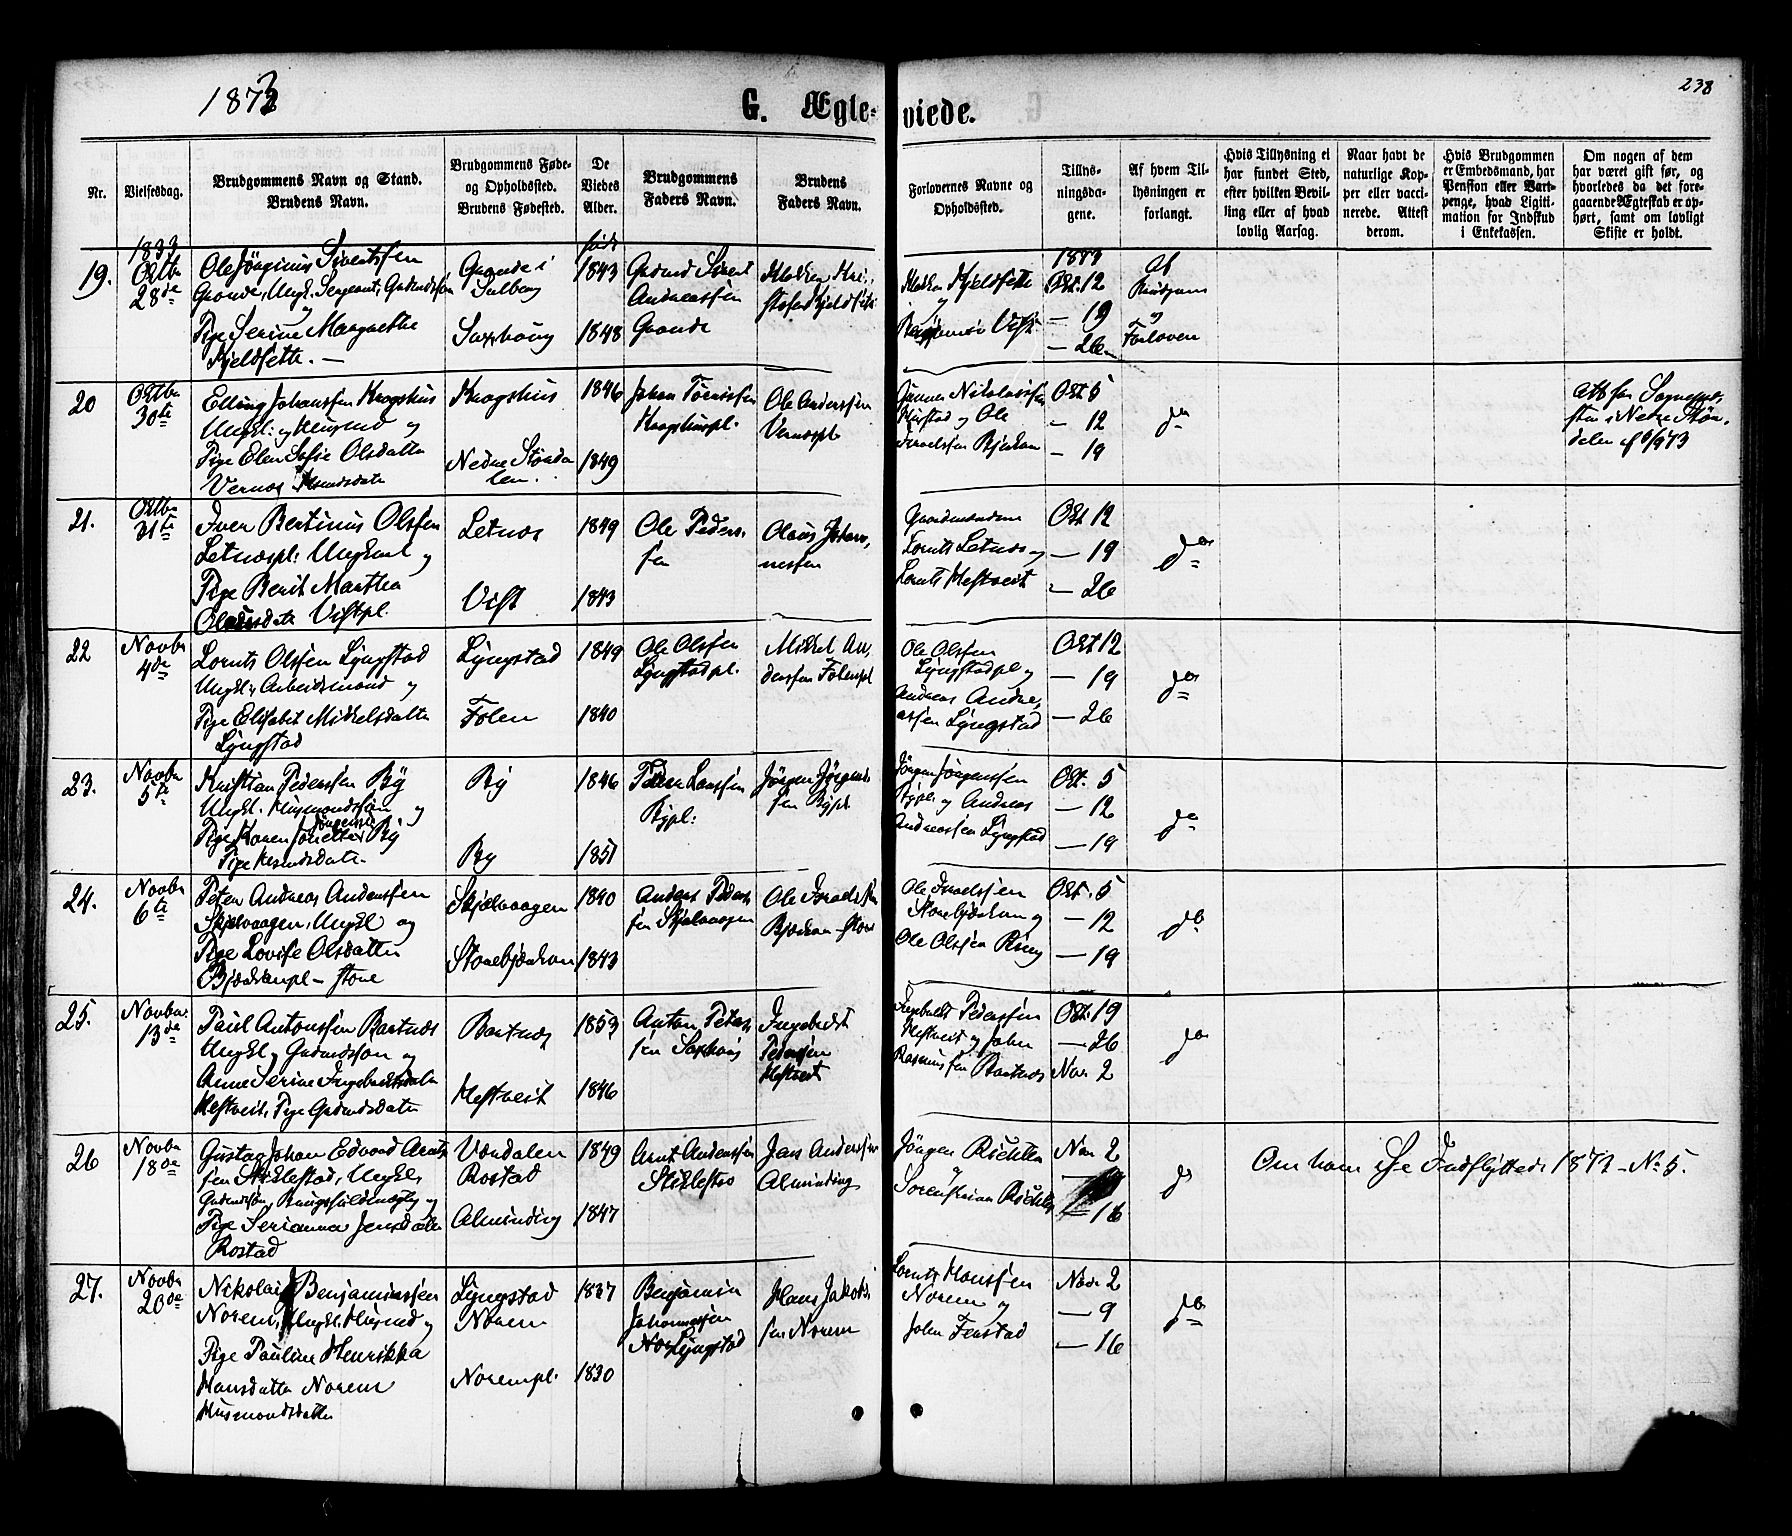 1873
G. Ægte-
viede.
238
Nr.
Vielsesdag.
Brudgommens Navn og Stand.
Brudens Navn.
Brudgommens Føde-
og Opholdssted.
Brudens Fødested.
De
Viedes
Alder.
Brudgommens
Faders Navn.
Brudens
Faders Navn.
Forlovernes Navne og
Opholdssted.
Tillys-
ningsda-
gene.
Af hvem Til-
lysningen er
forlangt.
Hvis Tillysning ei
har fundet Sted,
efter hvilken Bevil-
ling eller af hvad
lovlig Aarsag.
Naar havt de
naturlige Kop-
per eller vacci-
nerede. Attest
derom.
Hvis Brudgommen
er Embedsmand, har
Pension eller Vart-
penge, hvad Ligiti-
mation for Indskud
i Enkekassen.
Om nogen af dem
har været gift før, og
hvorledes da det fore-
gaaende Ægteskab er op-
hørt, samt om lovligt
Skifte er holdt.
19.
Octbr
28de
Ole Jørginus Sivertsen
Grande, Ungk. Sergeant, Gaardmdssøn
og
Pige Serine Margrethe
Kjeldsette. —
Grande i
Salberg
Saxhaug
født
1843
1848
Gadmd Sivert
Andreassen
Grande
Kjeldsette
og
Vist
Oct. 12
— 19
— 26
Af
Brudgom
og
Forlover
20
Octbr
30te
Elling Johanssen Kragshus
Ungk. og Husmd og
Pige Elen Sofie Olsdatter
Vernes Husmdsdatr
Kragshus
Nedre Størda
len.
1846
1849
Johan Tørrissen
Kragshuspl.
Ole Anderssen
Vernespl
Gunner Nikolaissen
Hustad og Ole
Israelssen Bjerkan
Oct 5
— 12
— 19
do
Att fra Sognepre,
sten i Nedre Stør,
dalen
21.
Octbr
31te
Iver Bertinus Olssen
Letnespl. Ungkarl og
Pige Berit Martha
Olausdatr Vistpl.
Letnes
Vist
1849
1843
Ole Peders,
sen
Olaus Johan,
nessen
Gaardmændene
Lornts Letnes og
Lornts Hestveit
Oct 12
— 19
— 26
do
22
Novbr
4de
Lornts Olssen Lyngstad
Ungk. Arbeidsmand og
Pige Elisabet Mikkelsdatter
Lyngstad
Lyngstad
Folen
1849
1840
Ole Olssen
Lyngstadpl.
Mikkel An,
derssen Folenpl
Ole Olssen
Lyngstadpl og
Andreas Andre,
assen Lyngstad
Oct 12
— 19
— 26
do
23.
Novbr
5te
Kristian Pederssen By
Ungk. Husmandssøn og
Pige Karen Jonetta Jørgensdr By
Pige Husmdsdatr.
By
By
1846
1851
Peder Larssen
Bypl.
Jørgen Jørgens
sen Bypl
Jørgen Jørgenssen
Bypl. og Andreas
Andreassen Lyngstad
Oct. 5
— 12
— 19
do
24.
Novbr
6te
Peter Andreas Anderssen
Skjelvaagen, Ungkl og
Pige Lovise Olsdatter
Bjerkenpl - store
Skjelvaagen
Storebjerkan
1840
1843
Anders Peders
sen Skjelvaagen
Ole Israelssen
Bjerkan-store
Ole Israelssen
Storebjerkan og
Ole Olssen Ring
Oct. 5
— 12
— 19
do
25.
Novbr.
13de
Paul Antonssen Bartnes
Ungkl og Gadmdssøn og
Anne Serine Ingebrektsdatr
Hestveit, Pige Gadmdsdatr
Bartnes
Hestveit
1853
1846
Anton Peters
sen Saxhaug
Ingebrekt
Pederssen
Hestveit
Ingebrekt Pederssen
Hestveit og John
Rasmussen Bartnes
Oct. 19
— 26
Nov. 2
do
26
Novbr
18de
Gustag Johan Edvard Arnts
sen Stiklestad, Ungkl,
Pige Serianna Jensdatter
Rostad
Værdalen
Rostad
Alminding
1849
1847
Arnt Anderssen
Stiklestad
Jens Anderssen
Alminding
Jørgen Richter
og
Søren Richter
Nov 2
— 16
do
Om ham se Indflyttede 1872 - No 5.
27.
Novbr
20de
Nikolai Benjaminssen
Norem, Ungkl. Husmd og
Pige Pauline Henrikka
Hansdatter Norem
Husmandsdatter
Lyngstad
Norem
Norempl.
1837
1830
Benjamin
Johannessen
Lyngstad
Hans Jakobs
sen Norem
Lornts Hanssen
Norem og
John Fenstad
Nov. 2
— 9
— 16
do